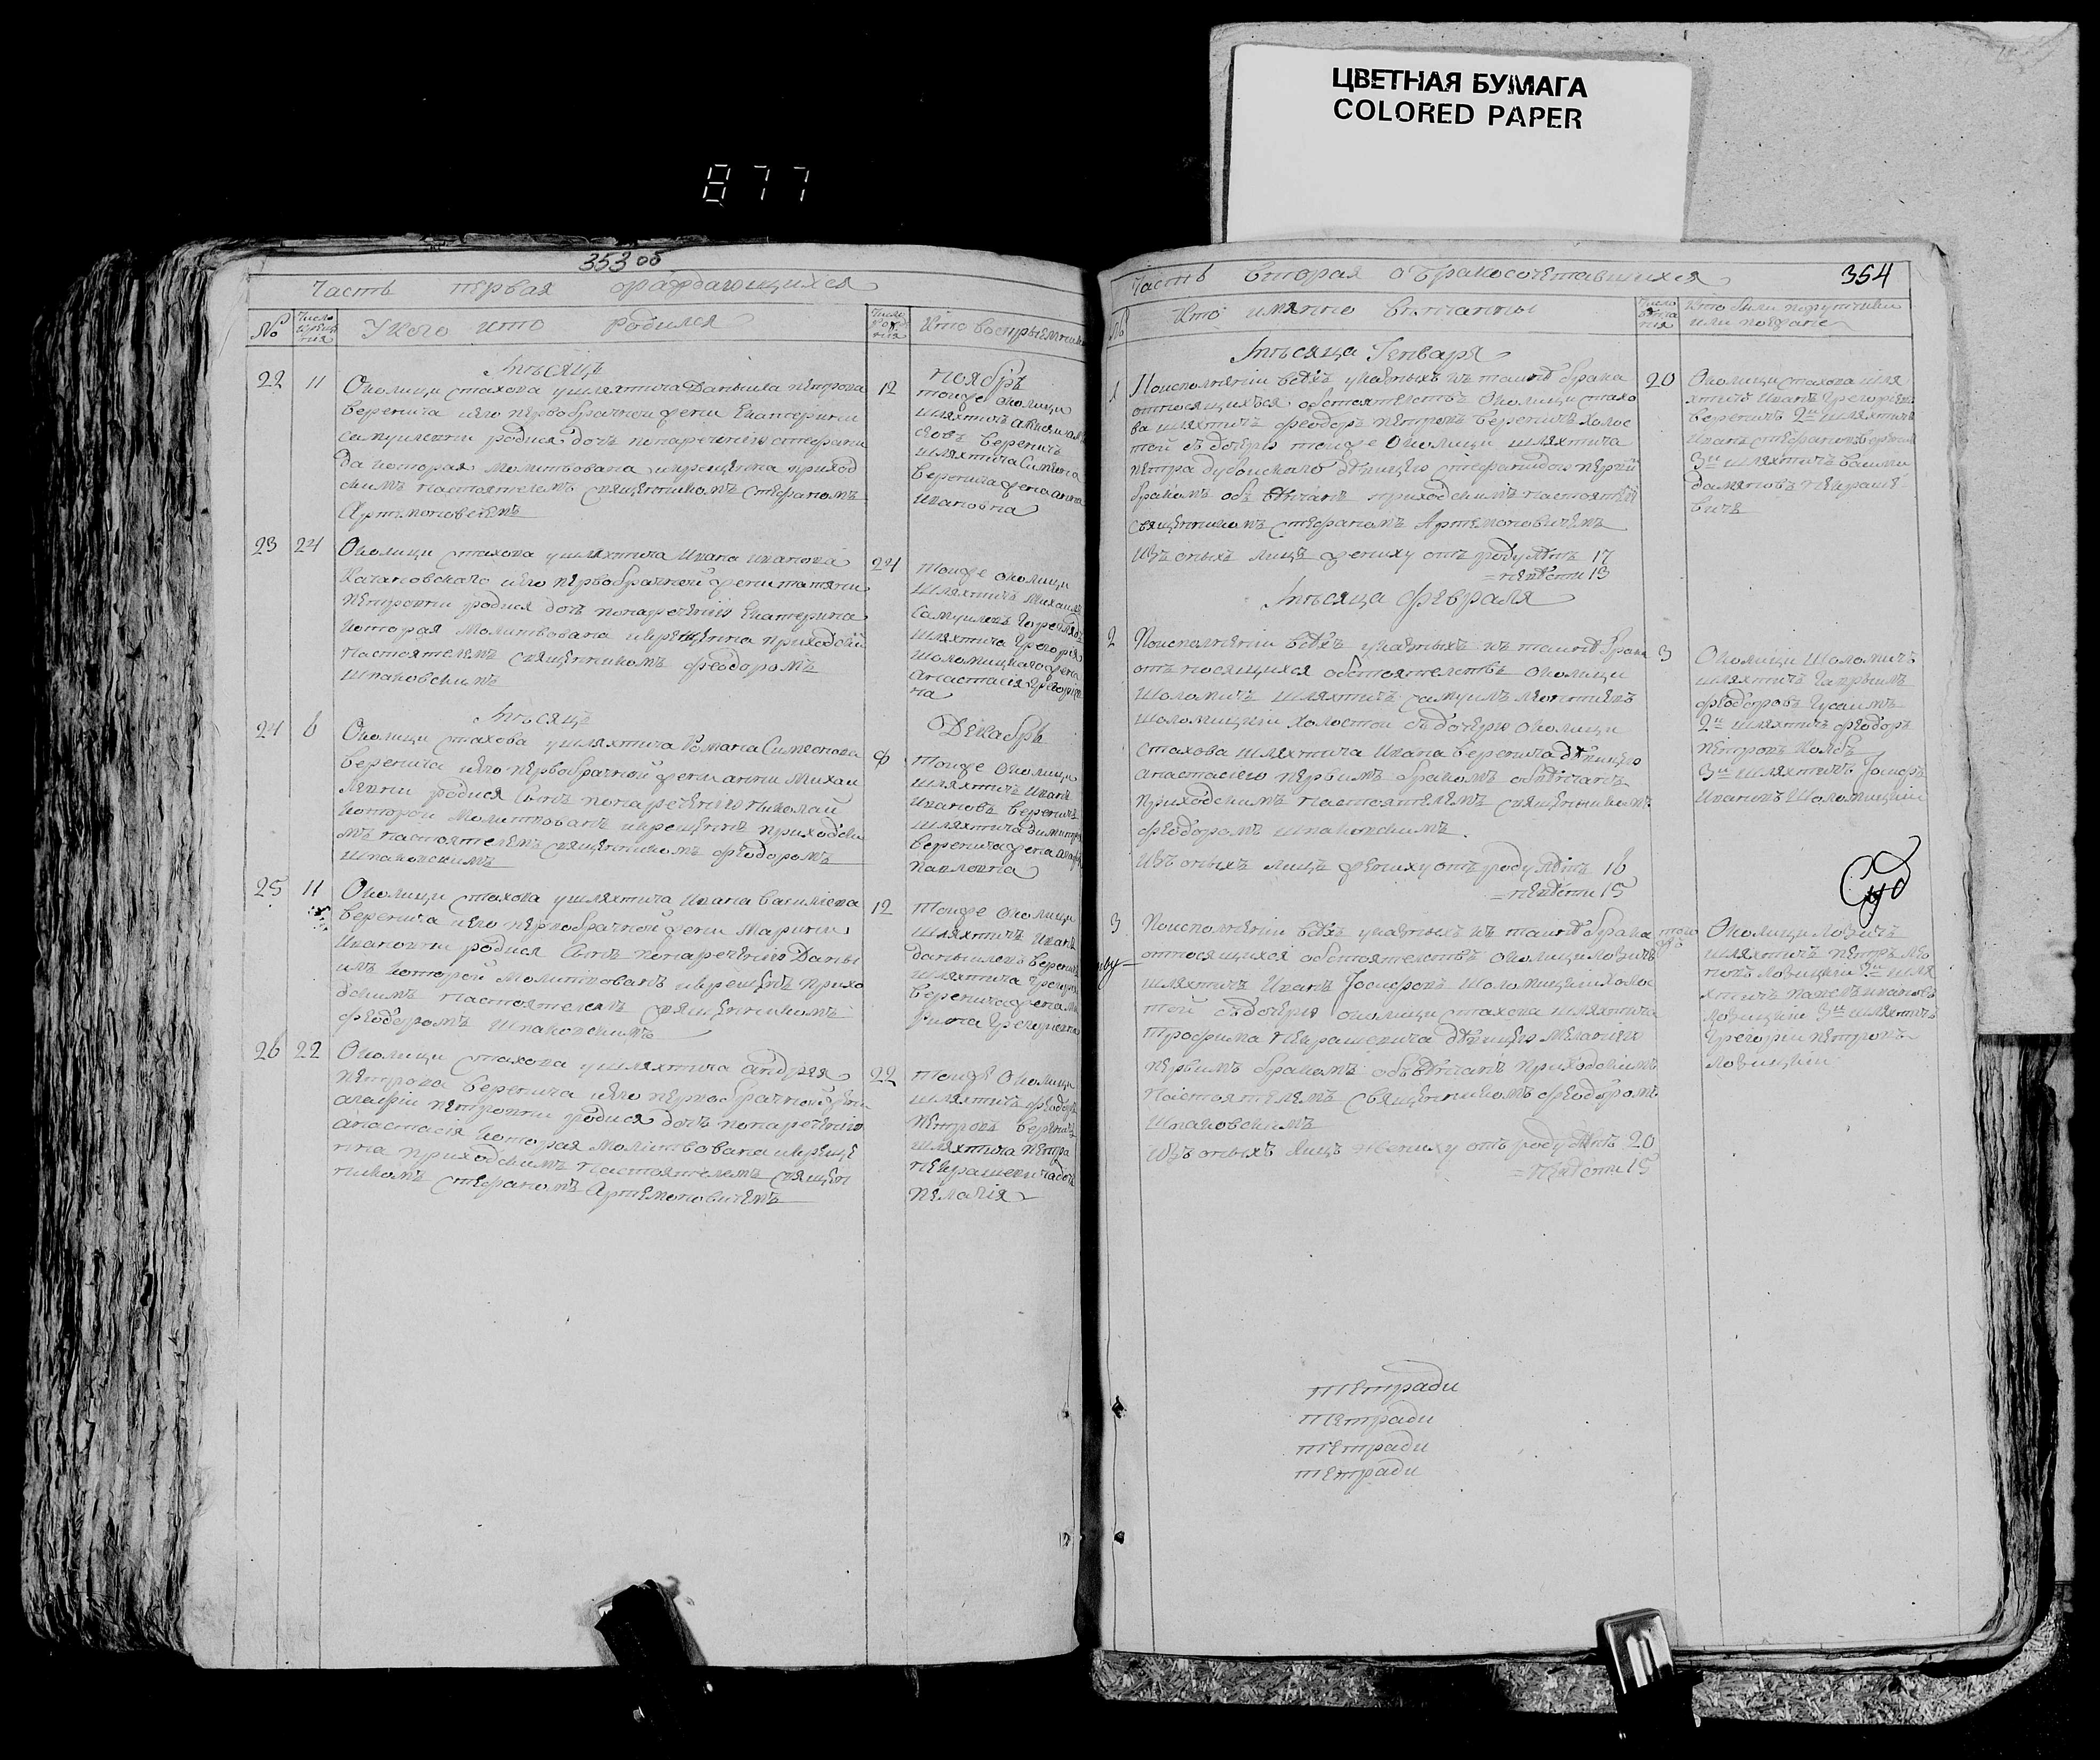 ЦВЕТНАЯ БУМАГА
COLORED PAPER
877
353 об
Часть первая о раждающихся
№
Число креще
ния
У кого кто родился
Число рож
ния
Кто восприемники
Мѣсяцъ
Ноябрь
22 11
Околици стахова у шляхтича Даныила петрова
Веренича иего первобрачной жени Екатерини
самуиловни родися дочъ
да которая молитвована икрещенна приход
скимъ настоятелемъ священникомъ стефаномъ
Артимоновичемъ
12
тоиже околици
шляхтичъ
вереничъ
шляхтича Симеона
веренича жена анна
ивановна
23 24
Околици стахова у шляхтича Ивана иванова
Качановскаго иего первобрачной жени татяни
петровни родися дочъ понаречению Екатерина
которая молитвована икрещенна приходский
настоятелемъ священникомъ феодоромъ
шпаковскимъ
24
тоиже околици
шляхтичъ михаилъ
самуиловъ
шляхтича Григория
шоломицкаго жена
анастасия
на
Мѣсяцъ
Декабрь
24 6
Околици стахова ушляхтича Романа Симеонова
веренича иего первобрачной жени анни михаи
ловни родися Сынъ понаречению николай
которой молитвованъ икрещеннъ приходски
мъ настоятелемъ священникомъ феодоромъ
шпаковскимъ
тоиже околици
шляхтичъ Иванъ
Ивановъ вереничъ
шляхтича димитрия
веренича жена
павловна
25 11
Околици стахова ушляхтича Ивана василиева
веренича иего первобрачной жени Марини
ивановни родися Сынъ понаречению Даны
илъ которой молитвованъ икрещенъ прихо
дскимъ настоятелемъ священникомъ
феодоромъ шпаковскимъ
12
тоиже околици
шляхтичъ Иванъ
данылевъ веренич
шляхтича григория
веренича жена ма
рина Григориевна
26 22
Околици стахова ушляхтича андрея
петрова веренича иего первобрачной жени
агафии петровни родися дочъ понаречению
анастасия которая молитвована икреще
нна приходскимъ настоятелемъ священ
никомъ стефаномъ Артемоновичемъ
22
тоиже околици
шляхтичъ феодоръ
петровъ веренич
шляхтича петра
некрашевича дочъ
пелагия
Часть вторая о бракосочетавшихся
354
№
Кто имянно венчанны
Число венча
ния
Кто были поручники
или поезжане
Мѣсяца Генваря
1
Поисполнении всѣхъ указныхъ ктаинѣ брака
относящихъся обстоятелствъ околици стахо
ва шляхтичъ феодоръ петровъ вереничъ холос
той съ дочерю тоиже околици шляхтича
петра дубойскаго дѣвицею стефанидою первий
бракомъ обвѣнчанъ приходскимъ настоятелем
священникомъ стефаномъ Артемоновичемъ
изъ оныхъ лицъ жениху отъ роду лѣтъ 17
= невѣсти 13
20
Околици стахова шля
хтичъ Иванъ Григориевъ
веренич 2й шляхтичъ
Иванъ стефановъ верени
3й шляхтичъ васили
дамяновъ некраше
вичъ
Мѣсяца февраля
2
Поисполнении всѣхъ указныхъ ктаинѣ брака
относящихся обстоятелствъ околици
шоломичъ шляхтичъ самуилъ леонтиевъ
шоломицкии холостои съдочерю околици
стахова шляхтича ивана веренича дѣвицею
анастасиею первимъ бракомъ обвѣнчанъ
приходскимъ настоятелемъ священникомъ
феодоромъ шпаковскимъ
изъ оныхъ лицъ жениху отъ роду лѣтъ 16
= невѣсти 15
3
Околици шоломичъ
шляхтичъ гаврыилъ
феодоровъ
2й шляхтичъ феодоръ
петровъ
3й шляхтичъ Иосифъ
ивановъ шоломицкии
3
Поисполнении всѣхъ указныхъ ктаинѣ брака
относящихся обстоятелствъ околици ловичъ
шляхтичъ иванъ Иосифовъ шоломицкии холос
той съдочерю околици стахова шляхтича
трофима некрашевича дѣвицею меланиею
первимъ бракомъ обвѣнчанъ приходскимъ
настоятелемъ священникомъ феодоромъ
шпаковскимъ
изъ оныхъ лицъ жениху отъ роду лѣтъ 20
= невѣсти 15
Околици ловичъ
шляхтичъ петръ ле
ловицкии 2й шля
хтичъ павелъ ивановъ
ловицкии 3й шляхтичъ
григории петровъ
ловицкии
тетради
тетради
тетради
тетради